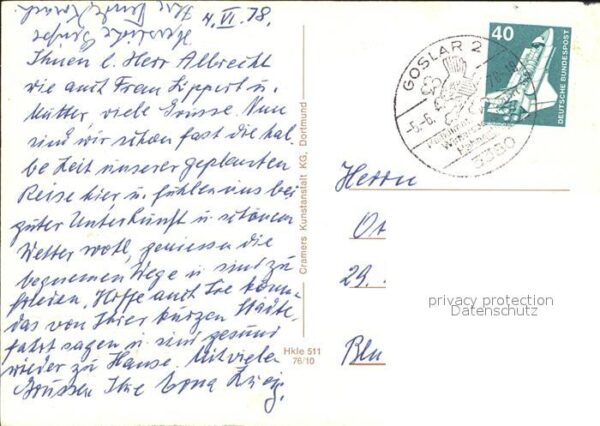 4. VI. 78.
Herzliche Grüße
Ihnen l. Herr Albrecht
wie auch Frau Lippert u.
Mutter, viele Grüsse. Nun
sind wir schon fast die hal-
be Zeit unserer geplanten
Reise hier u. fühlen uns bei
guter Unterkunft u. schönem
Wetter wohl, geniessen die
bequemen Wege u. sind zu
frieden. Hoffe auch Sie könn.
das von Ihrer kurzen Städte-
fahrt sagen u. sind gesund
wieder zu Hause. Mit vielen
Grüssen Ihre Erna
Cramers Kunstanstalt KG, Dortmund
Hkle 511
76/10
40
DEUTSCHE BUNDESPOST
GOSLAR 2
3380
Herrn
Ot
29.
Bln
privacy protection
Datenschutz